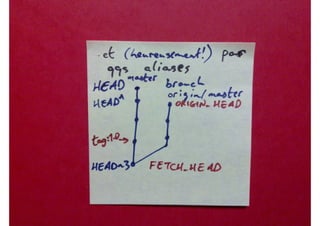 .et (heureusement!) par
qqs aliases
HEAD master branch
HEAD^ origin/master
ORIGIN_HEAD
tag:1.0→
HEAD~3 FETCH_HEAD